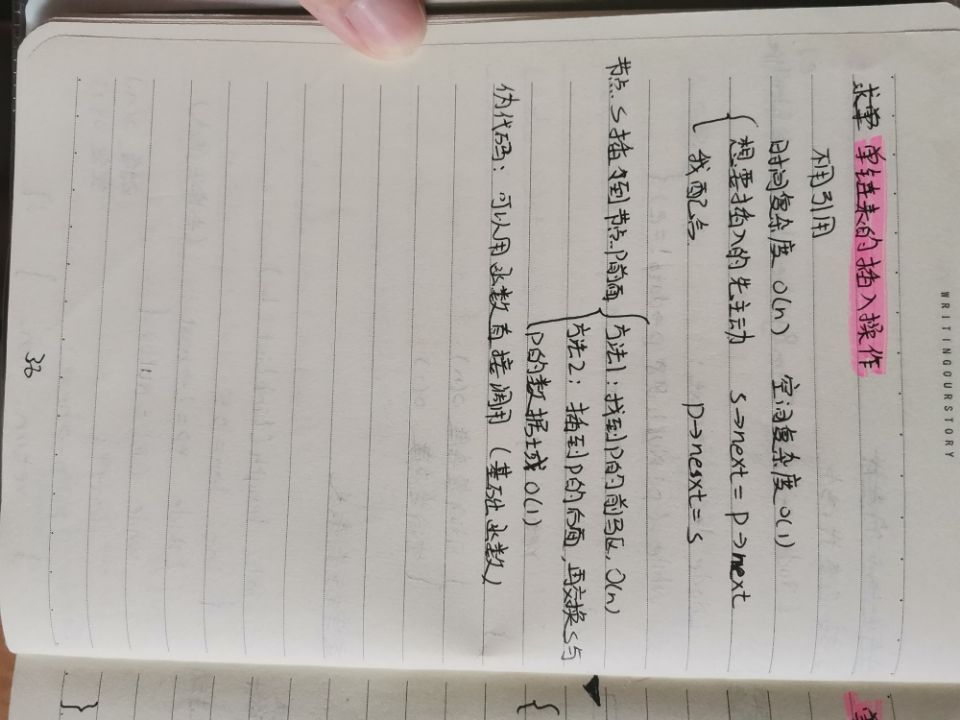 WRITINGOURSTORY
求单 单链表的插入操作
利用引用
时间复杂度 O(n) 空间复杂度 O(1)
想要插入的先主动 s→next = p→next
我配合 p→nesxt = s
节点 S 插到节点 P 前面 方法1:找到P的前驱, O(n)
方法2:插到P的后面,再交换S与
P的数据域 O(1)
伪代码: 可以用函数直接调用 (基础函数)
36